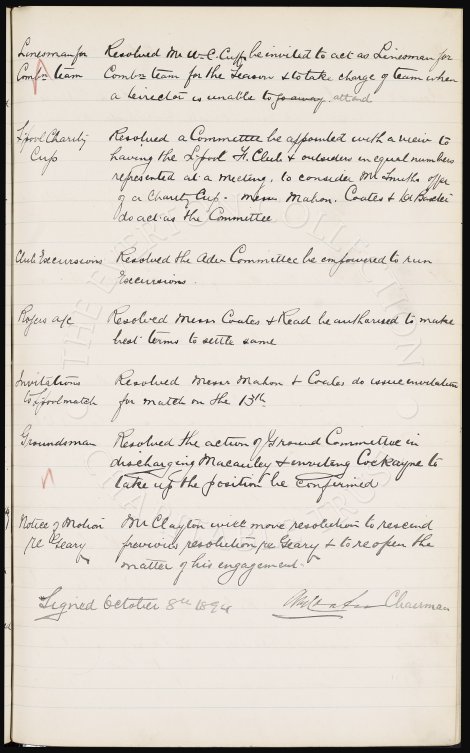 Linesman for Resolved Mr W.C. Cuff be invited to act as Linesman for
Combn team Combn team for the Season & to take charge of team when
a Director is unable to go away attend
L'pool Charity Resolved a Committee be appointed with a view to
Cup having the L'pool F. Club & outsiders in equal numbers
represented at a meeting, to consider Mr Smiths offer
of a Charity Cup. Messrs Mahon, Coates & Dr Baxter
do act as the Committee
Club Excursions Resolved the Adv Committee be empowered to run
Excursions.
Rogers a/c Resolved Messrs Coates & Read be authorised to make
best terms to settle same
Invitations Resolved Messrs Mahon & Coates do issue invitations
to L'pool match for match on the 13th
Groundsman Resolved the action of Ground Committee in
discharging Macauley & inviting Cockayne to
take up the position be confirmed
Notice of Motion Mr Clayton will move resolution to rescind
re Geary previous resolution re Geary & to reopen the
matter of his engagement.
Signed October 8th 1894 Chairman
THE EVERTON COLLECTION
CHARITABLE TRUST